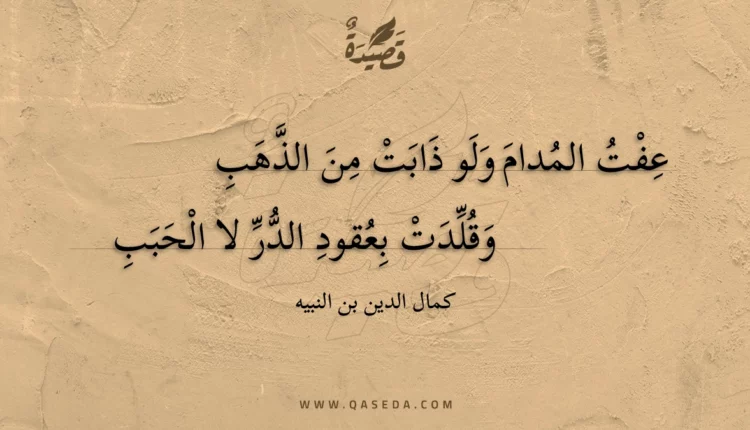 قَصِيْدَةٌ
عِفْتُ المُدامَ وَلَو ذَابَتْ مِنَ الذَّهَبِ
وَقُلِّدَتْ بِعُقودِ الدُّرِّ لا الْحَبَبِ
كمال الدين بن النبيه
WWW.QASEDA.COM